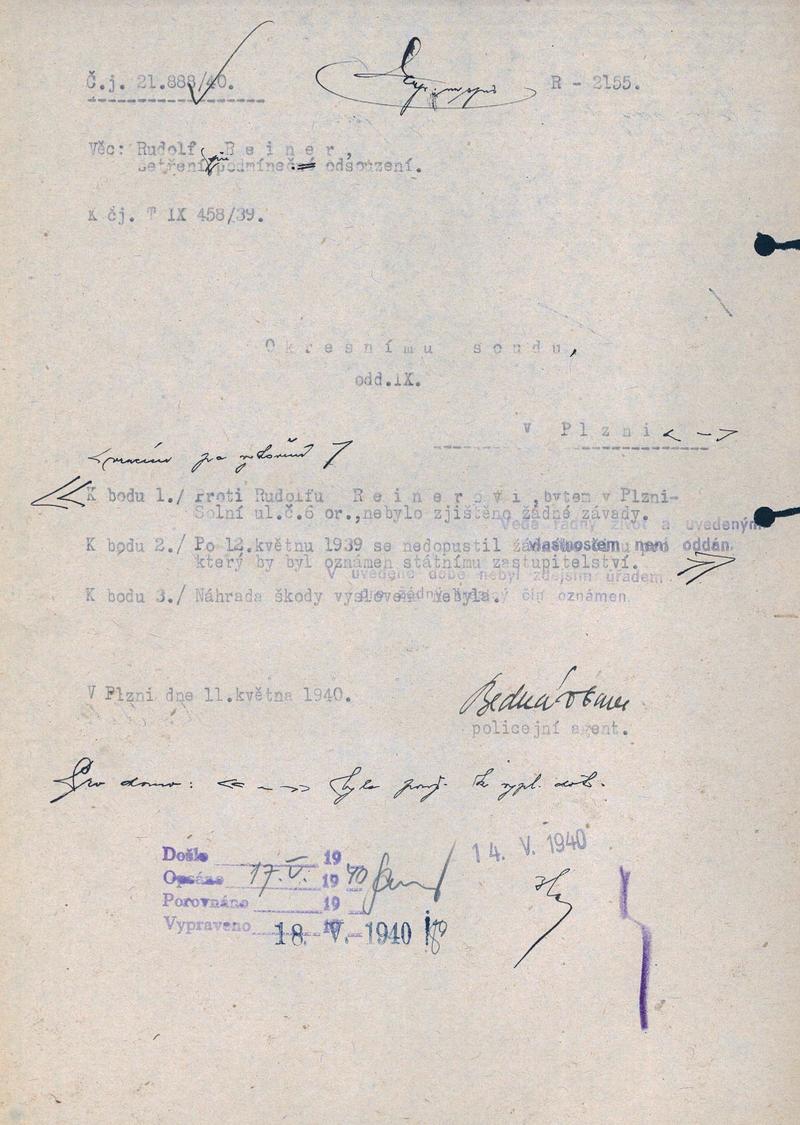 Č.j. 21.888/40.
R - 2155.
Věc: Rudolf R e i n e r ,
šetření při podmíněné odsouzení.
K čj. T IX 458/39.
O k r e s n í m u   s o u d u ,
odd.IX.
V   P l z n i
K bodu 1./ Proti Rudolfu R e i n e r o v i ,bytem v Plzni-
Solní ul.č.6 or.,nebylo zjištěno žádné závady.
Vede řádný život a uvedeným
vlastnostem není oddán.
K bodu 2./ Po 12.květnu 1939 se nedopustil
který by byl oznámen státnímu zastupitelství.
V uvedené době nebyl zdejším úřadem
pro žádný čin oznámen.
K bodu 3./ Náhrada škody vyslovena nebyla.
V Plzni dne 11.května 1940.
policejní agent.
Pro domo:
Došlo 19
Opsáno 17.V. 1940
Porovnáno 19
Vypraveno 18. V. 1940
14. V. 1940